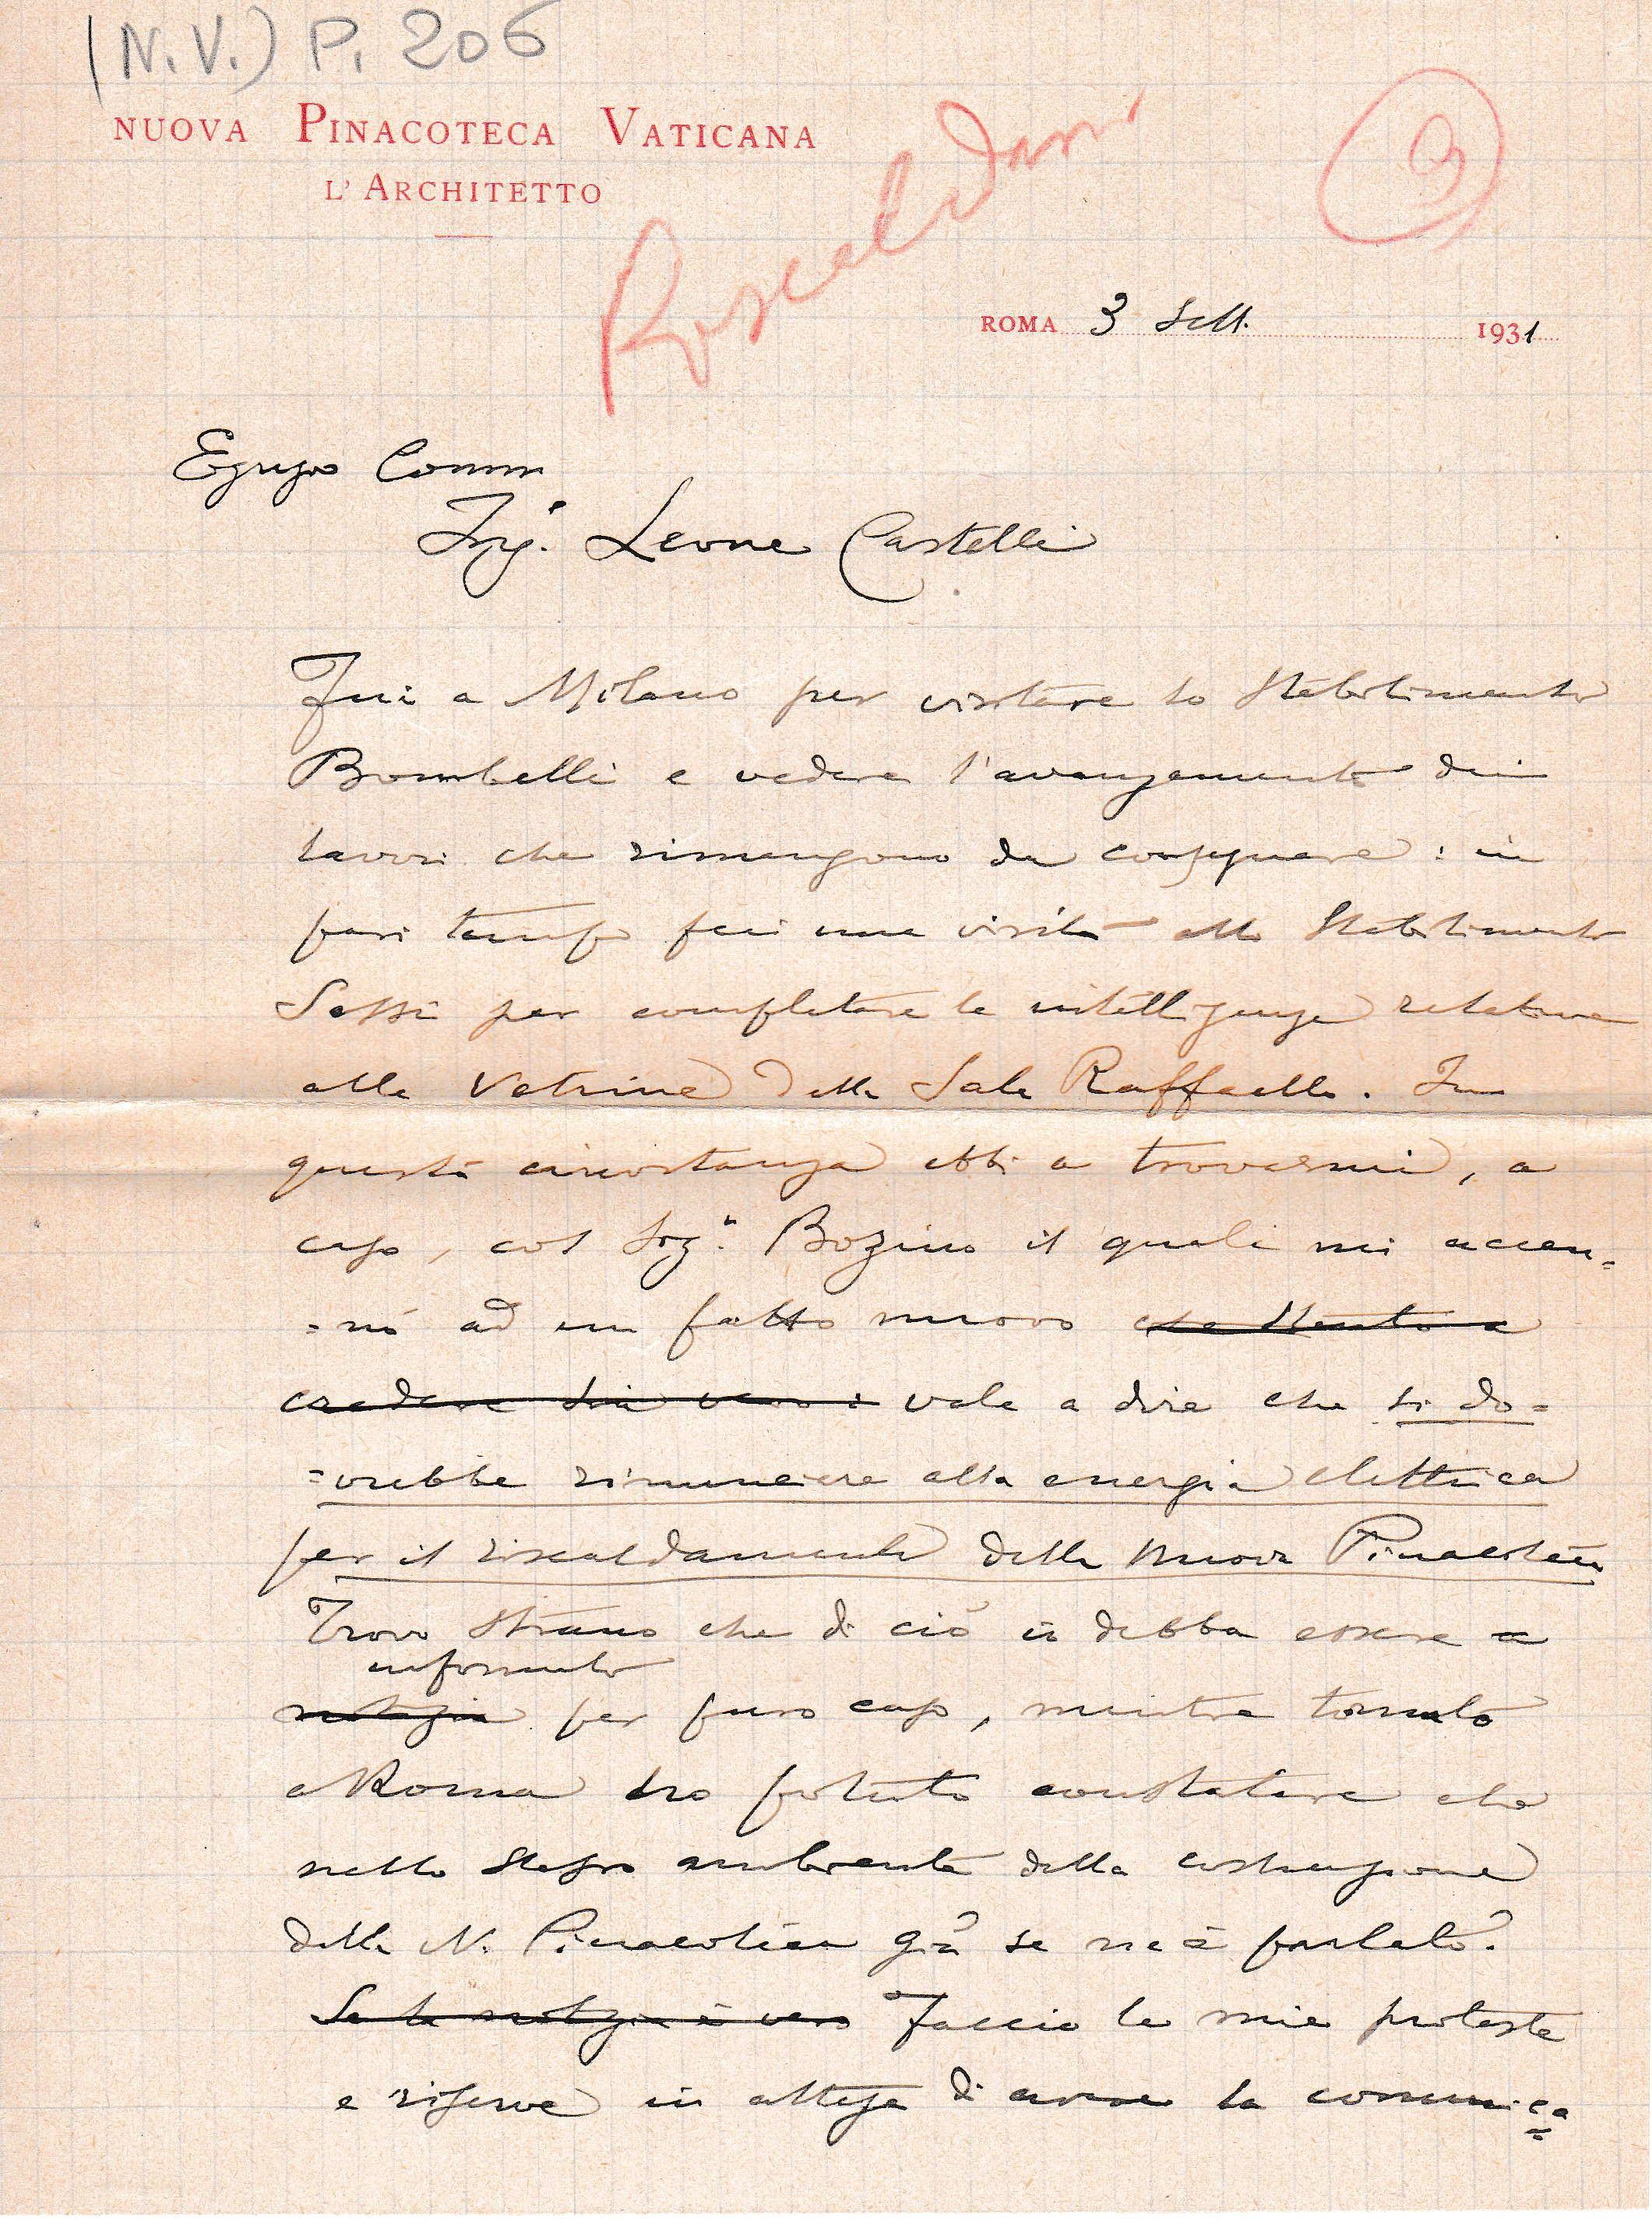 (N.V.) P. 206
NUOVA PINACOTECA VATICANA
L'ARCHITETTO
Riscaldam
3
ROMA 3 Sett. 1931
Egregio Comm
Ing.e Leone Castelli
Fui a Milano per visitare lo Stabilimento
Bombelli e vedere l'avanzamento dei
lavori che rimangono da consegnare : in
pari tempo feci una visita allo Stabilimento
Sassi per completare le intelligenze relative
alle Vetrine della Sala Raffaello. In
questa circostanza ebbi a trovarmi, a
caso, col Sig.r Bozino il quale mi accen=
=nò ad un fatto nuovo che stento a
credere sia vero : vale a dire che si do=
=vrebbe rinunciare alla energia elettrica
per il riscaldamento della Nuova Pinacoteca
Trovo strano che di ciò io debba essere a
informato
notizia per puro caso, mentre tornato
a Roma ho potuto constatare che
nello stesso ambiente della costruzione
della N. Pinacoteca già se ne è parlato.
Se la notizia è vera Faccio le mie proteste
e riserve in attesa di avere la comunica